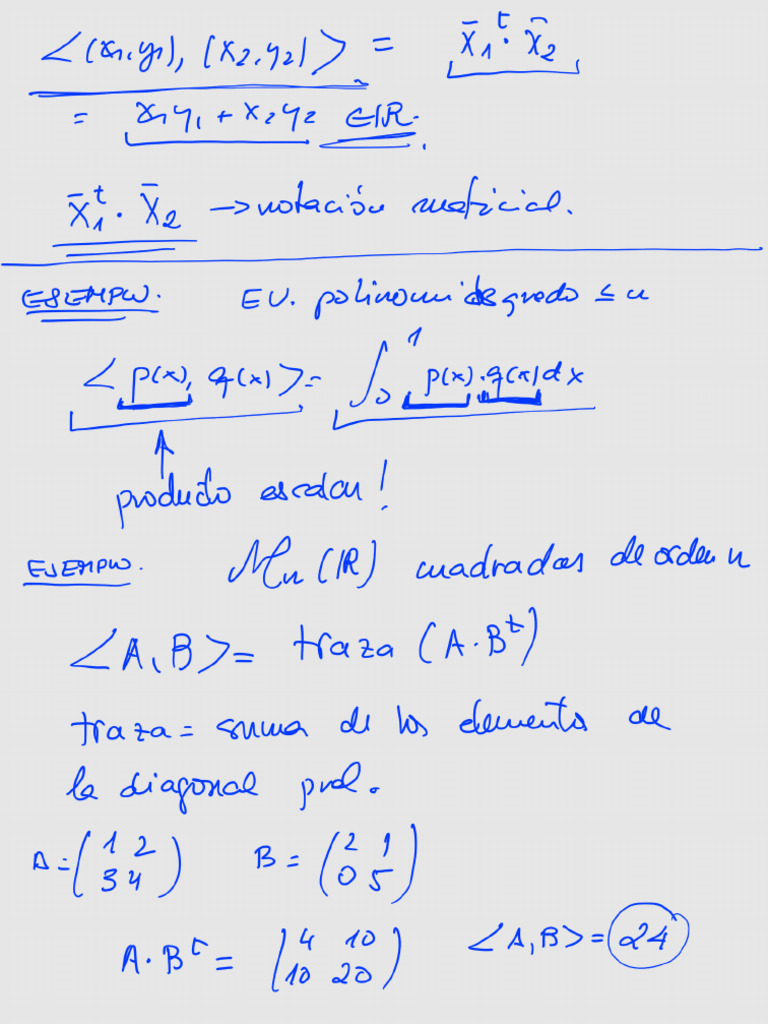 <(x₁,y₁), (x₂,y₂)> = x̄₁ᵗ · x̄₂
= x₁y₁ + x₂y₂ ∈ℝ.
x̄₁ᵗ · x̄₂ → notación matricial.
EJEMPLO. EV. polinomios de grado ≤ n
< p(x), q(x) > = ∫₀¹ p(x) · q(x) dx
producto escalar!
EJEMPLO. Mₙ (ℝ) cuadradas de orden n
<A, B> = traza (A · Bᵗ)
traza = suma de los elementos de
la diagonal pral.
A = (1 2; 3 4) B = (2 1; 0 5)
A · Bᵗ = (4 10; 10 20) <A, B> = 24